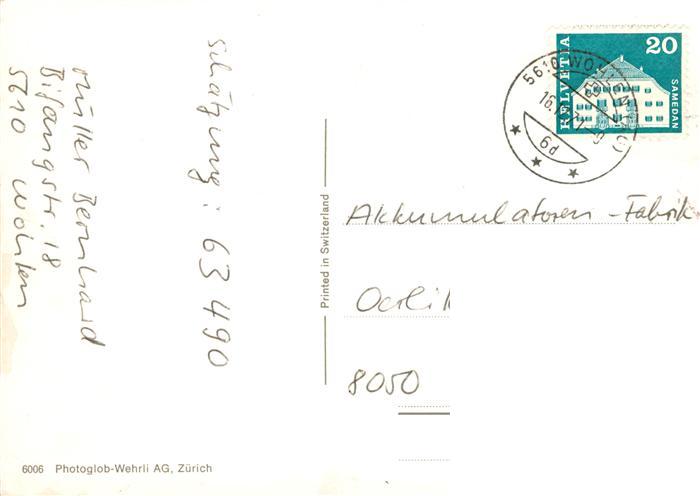 Müller Bernhard
Bifangstr. 18
5610 Wohlen
Schätzung: 63 490
HELVETIA
20
SAMEDAN
5610 WOHLEN (AG)
6d
Printed in Switzerland
Akkumulatoren-Fabrik
Oerlik
8050
6006 Photoglob-Wehrli AG, Zürich